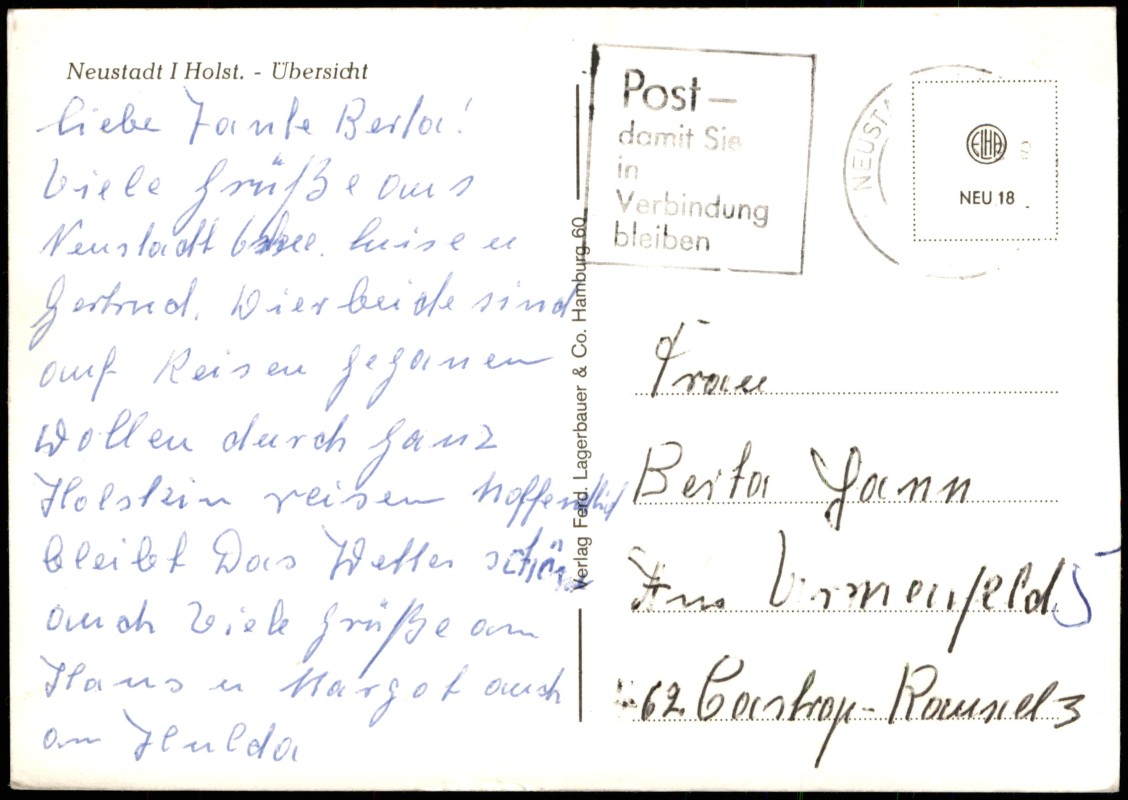 Neustadt I Holst. - Übersicht
liebe Tante Berta!
Viele Grüße aus
Neustadt luise u
Gertrud. Wier beide sind
auf Reisen gegangen
wollen durch ganz
Holstein reisen hoffendlich
bleibt Das Wetter schön
auch Viele Grüße an
Hans u Margot auch
an Hulda
Verlag Ferd. Lagerbauer & Co. Hamburg 60
Post—
damit Sie
in
Verbindung
bleiben
NEUSTA
ELHA
NEU 18
Frau
Berta Jann
Am 5
462 Castrop-Rauxel 3